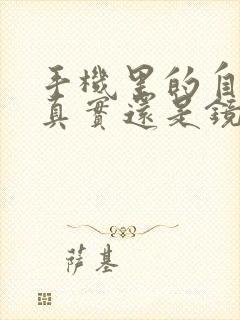 手機里的自
真實還是鏡
萨基